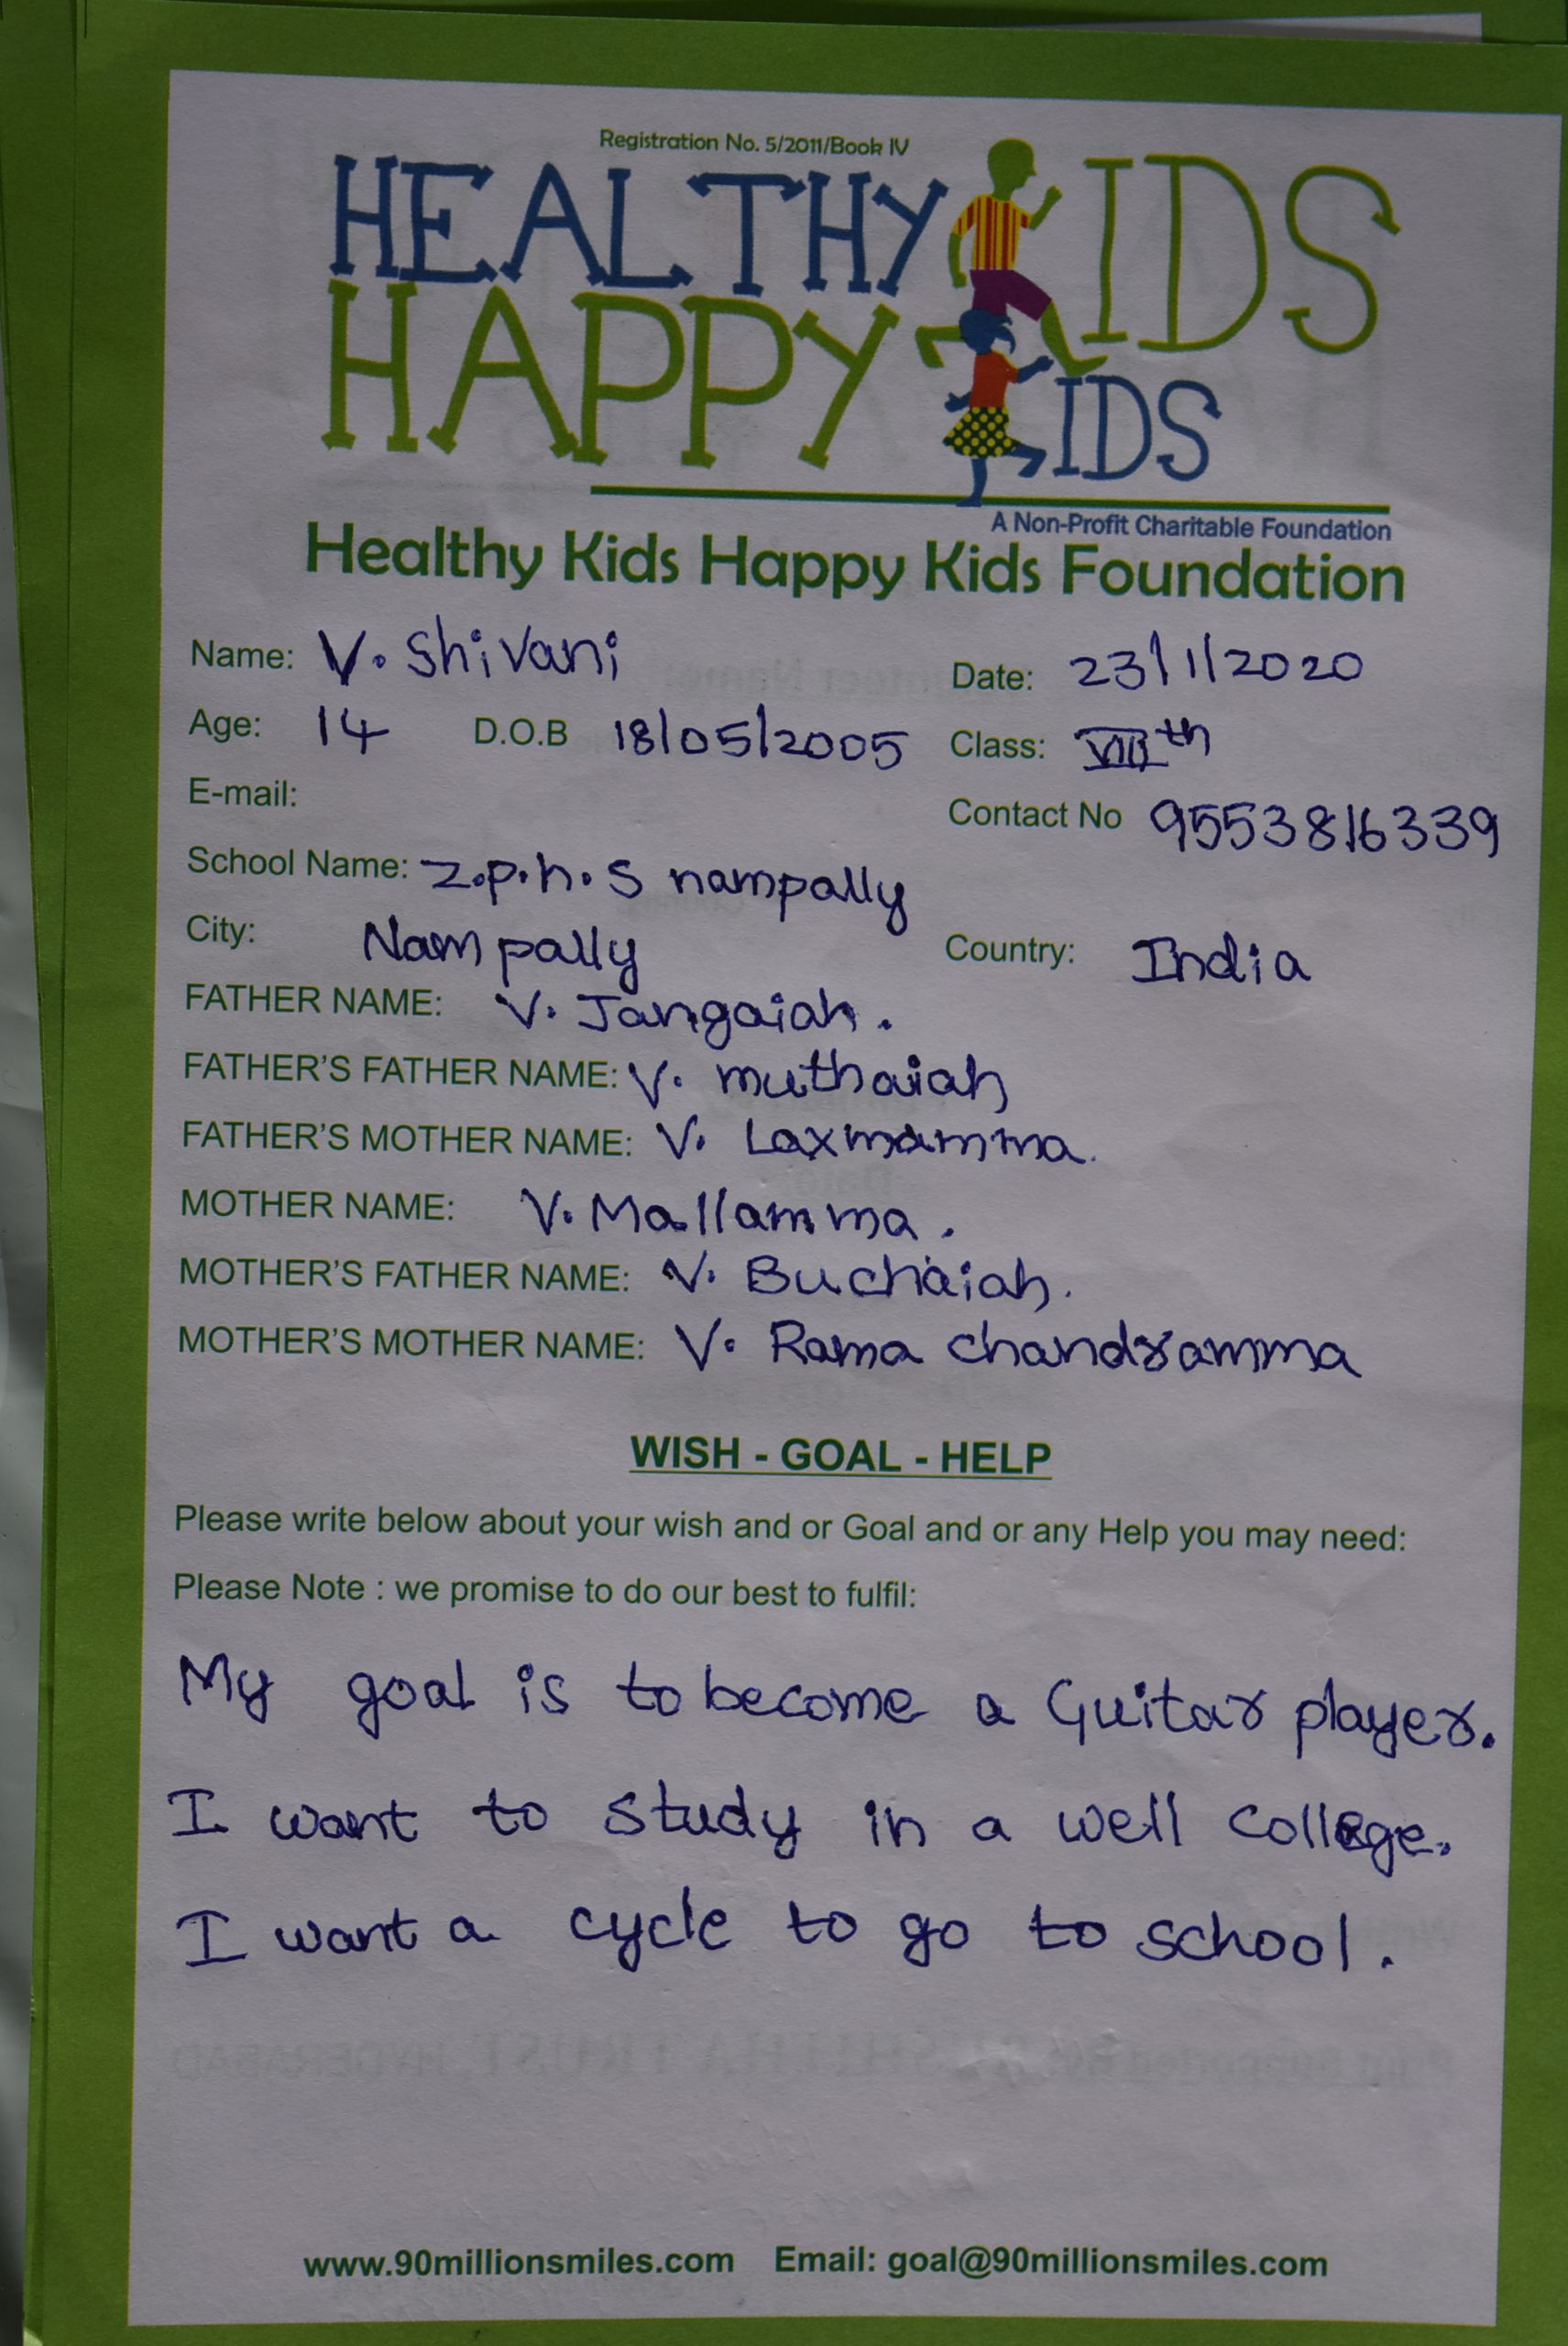 Registration No. 5/2011/Book IV
HEALTHY KIDS
HAPPY KIDS
A Non-Profit Charitable Foundation
Healthy Kids Happy Kids Foundation
Name: V. Shivani Date: 23/1/2020
Age: 14 D.O.B 18/05/2005 Class: VIIIth
E-mail: Contact No 9553816339
School Name: z.p.h.s nampally
City: Nampally Country: India
FATHER NAME: V. Jangaiah.
FATHER'S FATHER NAME: V. muthaiah
FATHER'S MOTHER NAME: V. Laxmamma.
MOTHER NAME: V. Mallamma.
MOTHER'S FATHER NAME: V. Buchaiah.
MOTHER'S MOTHER NAME: V. Rama chandramma
WISH - GOAL - HELP
Please write below about your wish and or Goal and or any Help you may need:
Please Note : we promise to do our best to fulfil:
My goal is to become a Guitar player.
I want to study in a well college.
I want a cycle to go to school.
www.90millionsmiles.com Email: goal@90millionsmiles.com